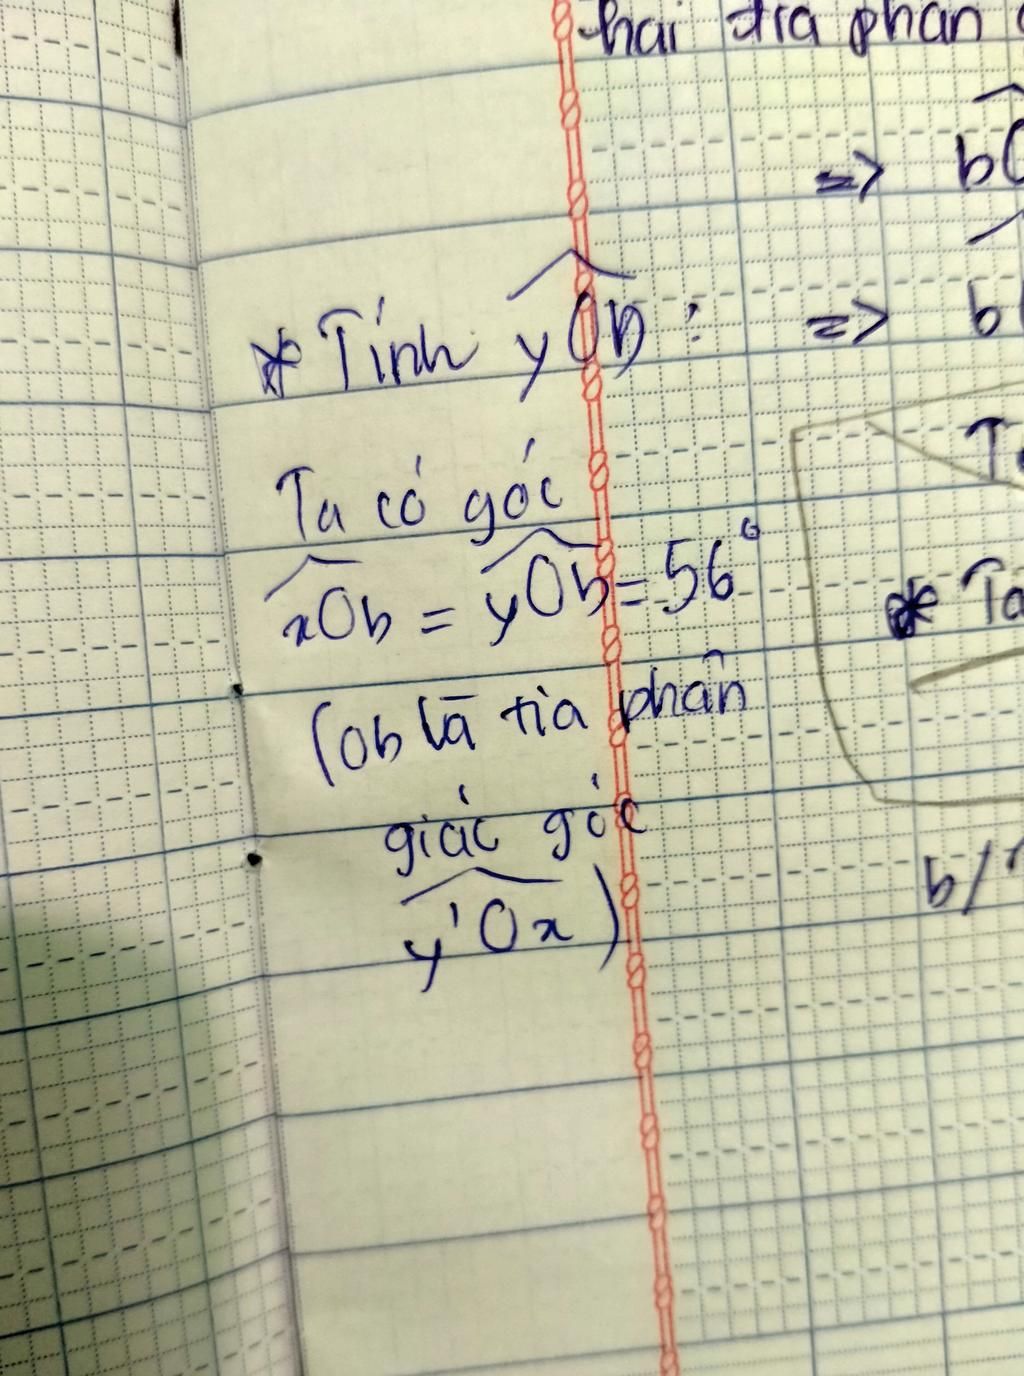 hai tia phân
=> bO
* Tính yOb :
=> b
Ta có góc
xOb = yOb = 56°
* Ta
(Ob là tia phân
giác góc
b/
y'Ox)